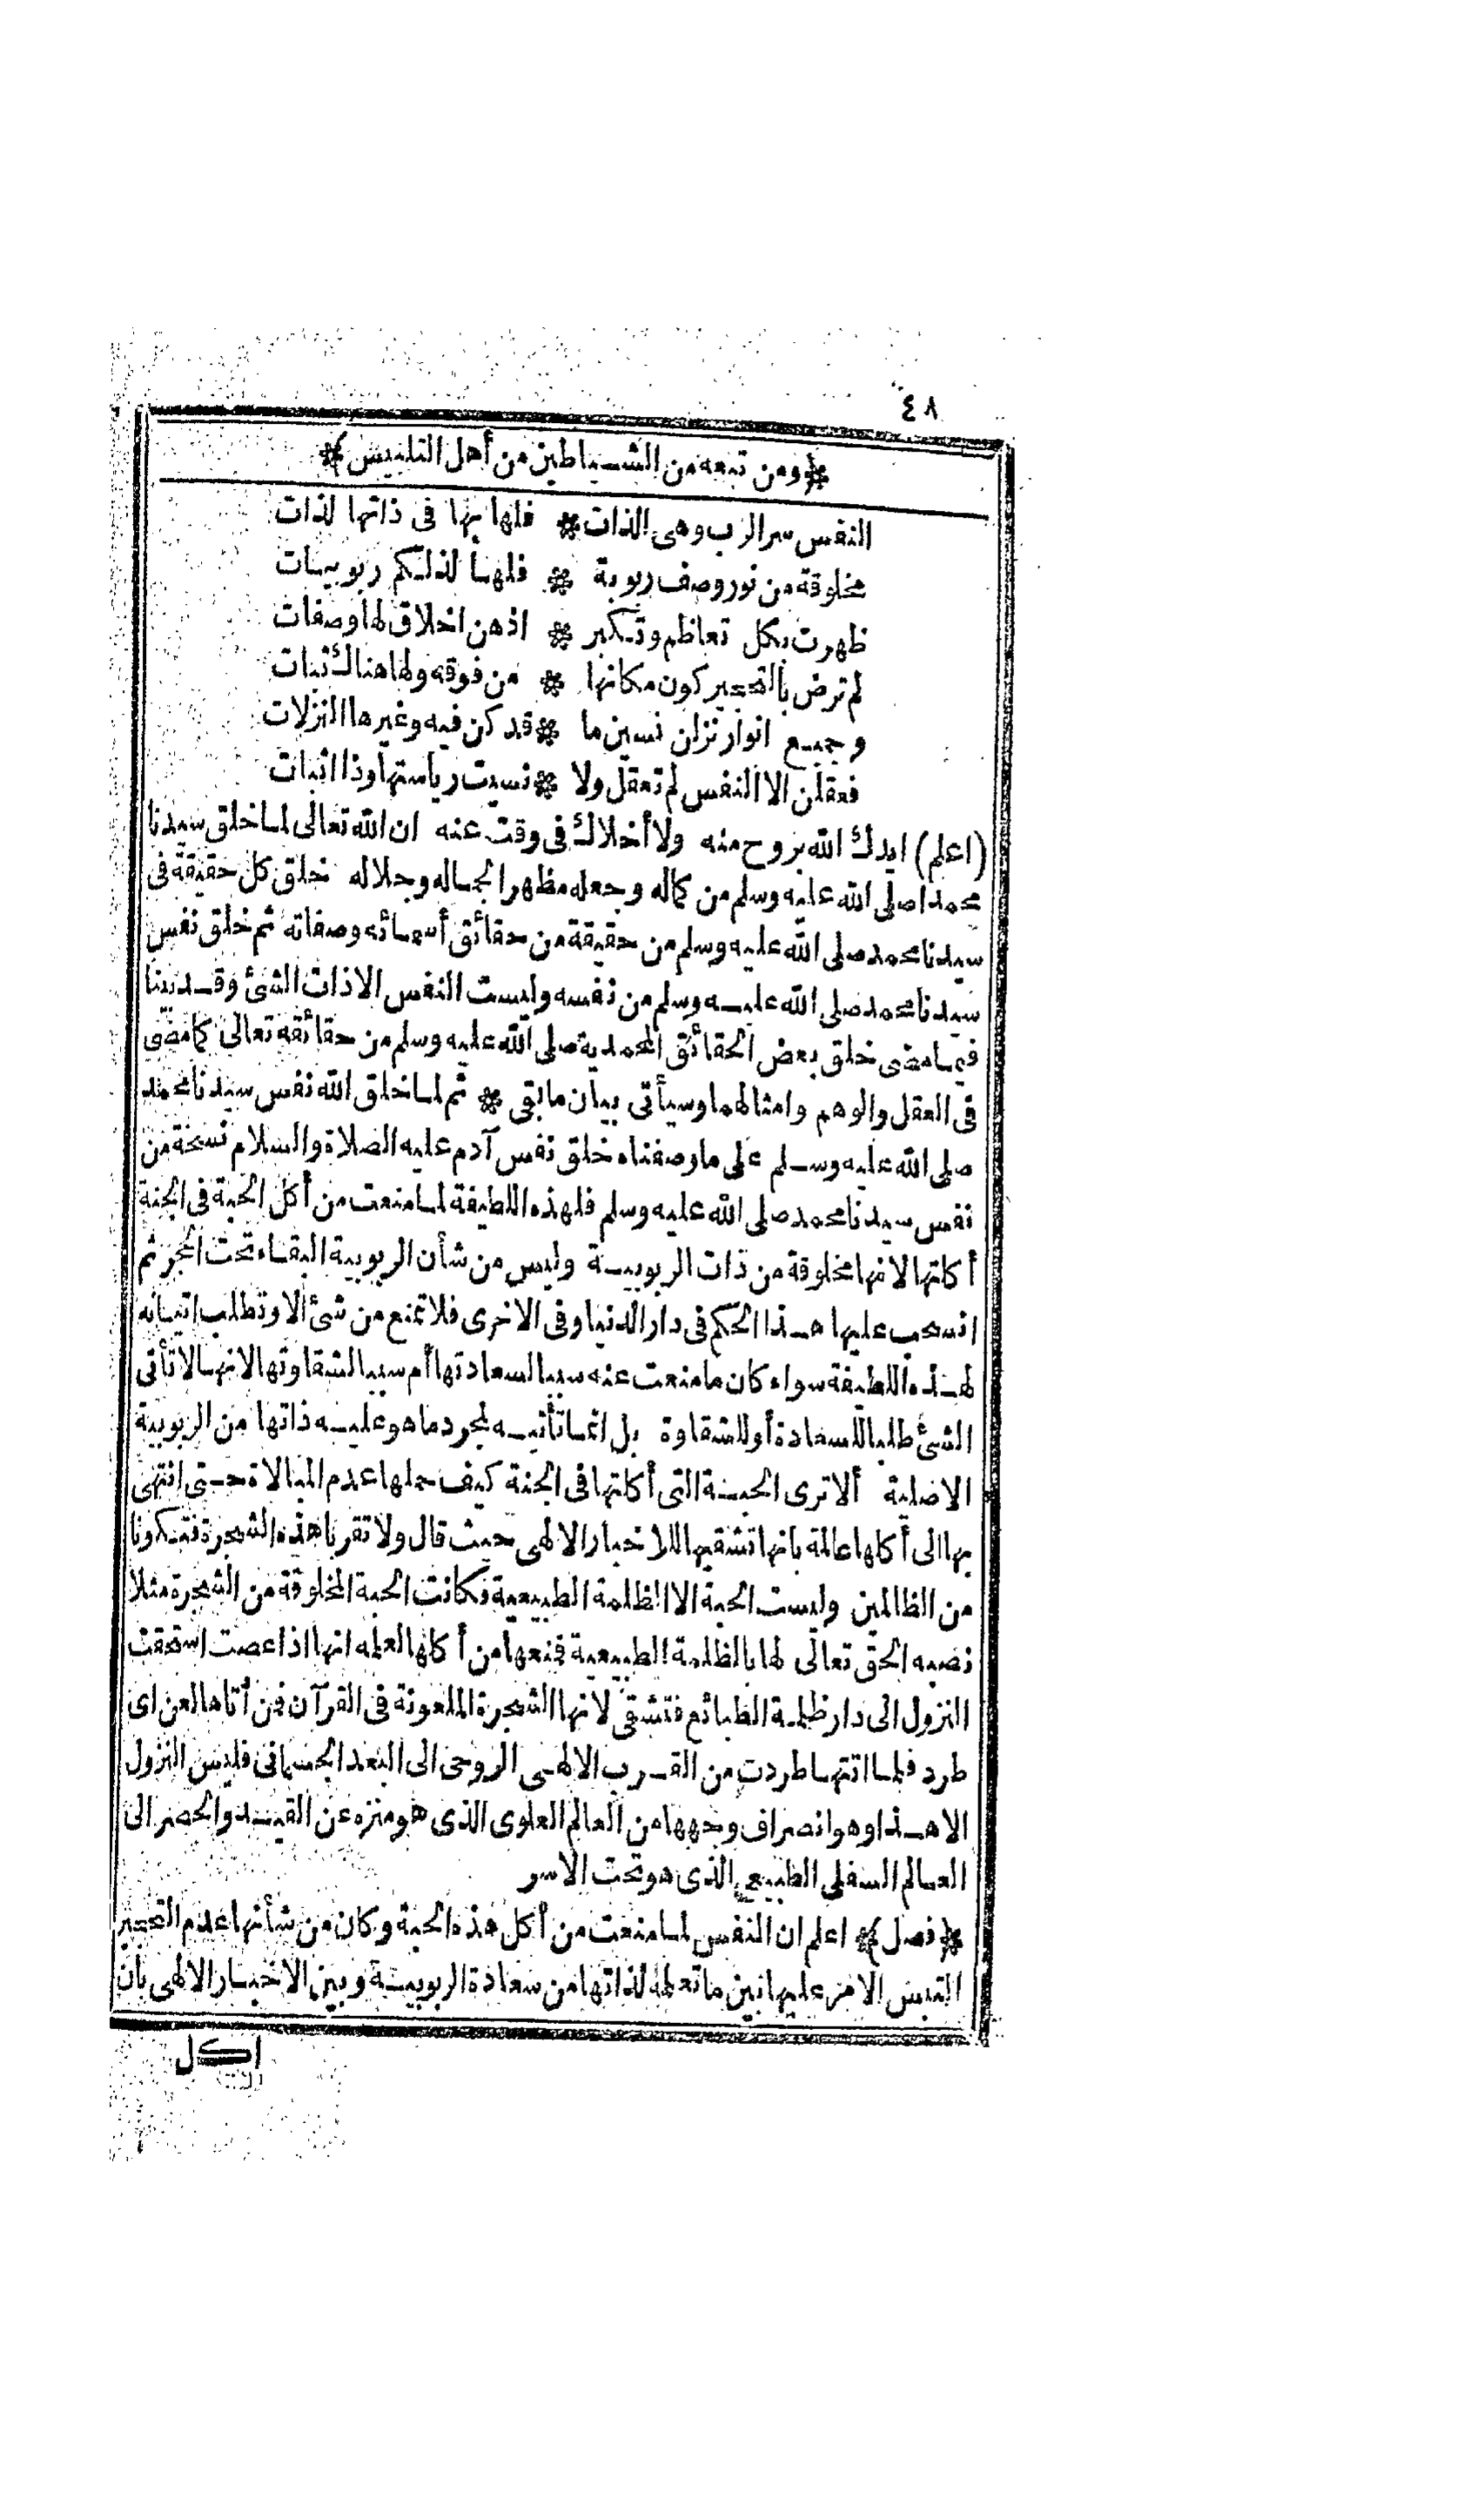 ٤٨
﴿ومن تبعه من الشياطين من أهل التلبيس﴾
النفس سر الرب وهى الذات * فلها بها فى ذاتها لذات
مخلوقة من نور وصف ربوبة * فلها لذلكم ربوبيات
ظهرت بكل تعاظم وتكبر * اذهن اخلاق لها وصفات
لم ترض بالتحجير كون مكانها * من فوقه ولها هناك ثبات
وجميع انوار نزلن نسين ما * قد كن فيه وغيرها النزلات
فعقلن الا النفس لم تعقل ولا * نسيت رياستها وذا اثبات
(اعلم) ايدك الله بروح منه ولا أخلاك فى وقت عنه ان الله تعالى لما خلق سيدنا
محمدا صلى الله عليه وسلم من كماله وجعله مظهرا لجماله وجلاله خلق كل حقيقة فى
سيدنا محمد صلى الله عليه وسلم من حقيقة من حقائق أسمائه وصفاته ثم خلق نفس
سيدنا محمد صلى الله عليه وسلم من نفسه وليست النفس الا ذات الشئ وقد بينا
فيما مضى خلق بعض الحقائق المحمدية صلى الله عليه وسلم من حقائقه تعالى كما مضى
فى العقل والوهم وامثالهما وسيأتى بيان ما بقى * ثم لما خلق الله نفس سيدنا محمد
صلى الله عليه وسلم على ما وصفناه خلق نفس آدم عليه الصلاة والسلام نسخة من
نفس سيدنا محمد صلى الله عليه وسلم فلهذه اللطيفة لما منعت من أكل الحبة فى الجنة
أكلتها لانها مخلوقة من ذات الربوبية وليس من شأن الربوبية البقاء تحت الحجر ثم
انسحب عليها هذا الحكم فى دار الدنيا وفى الاخرى فلا تمنع من شئ الا وتطلب اتيانه
لهذه اللطيفة سواء كان ما منعت عنه سببا لسعادتها أم سببا لشقاوتها لانها لا تأتى
الشئ طلبا للسعادة أو للشقاوة بل انما تأتيه لمجرد ما هو عليه ذاتها من الربوبية
الاصلية ألا ترى الحبة التى أكلتها فى الجنة كيف حملها عدم المبالاة حتى انتهى
بها الى أكلها عالمة بانها تشقيها للاخبار الالهى حيث قال ولا تقربا هذه الشجرة فتكونا
من الظالمين وليست الحبة الا الظلمة الطبيعية فكانت الحبة المخلوقة من الشجرة مثلا
نصبه الحق تعالى لها بالظلمة الطبيعية فمنعها من أكلها لعلمه انها اذا عصت استحقت
النزول الى دار ظلمة الطبائع فتشقى لانها الشجرة الملعونة فى القرآن فمن أتاها لعن اى
طرد فلما اتتها طردت من القرب الالهى الروحى الى البعد الجسمانى فليس النزول
الا هذا وهو انصراف وجهها من العالم العلوى الذى هو منزه عن القيد والحصر الى
العالم السفلى الطبيعى الذى هو تحت الاسر
﴿فصل﴾ اعلم ان النفس لما منعت من أكل هذه الحبة وكان من شأنها عدم التحجير
التبس الامر عليها بين ما تعلمه لذاتها من سعادة الربوبية وبين الاخبار الالهى بأن
اكل